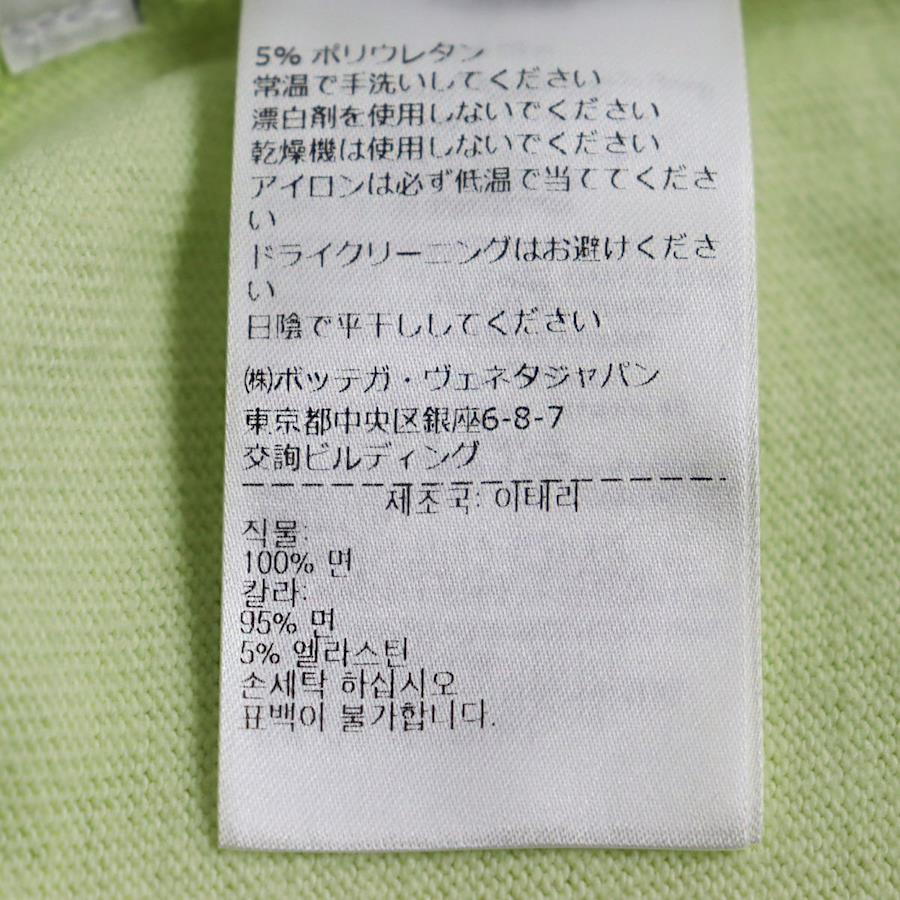 5% ポリウレタン
常温で手洗いしてください
漂白剤を使用しないでください
乾燥機は使用しないでください
アイロンは必ず低温で当ててくださ
い
ドライクリーニングはお避けくださ
い
日陰で平干ししてください
㈱ボッテガ・ヴェネタジャパン
東京都中央区銀座6-8-7
交詢ビルディング
제조국: 이태리
직물:
100% 면
칼라:
95% 면
5% 엘라스틴
손세탁 하십시오
표백이 불가합니다.